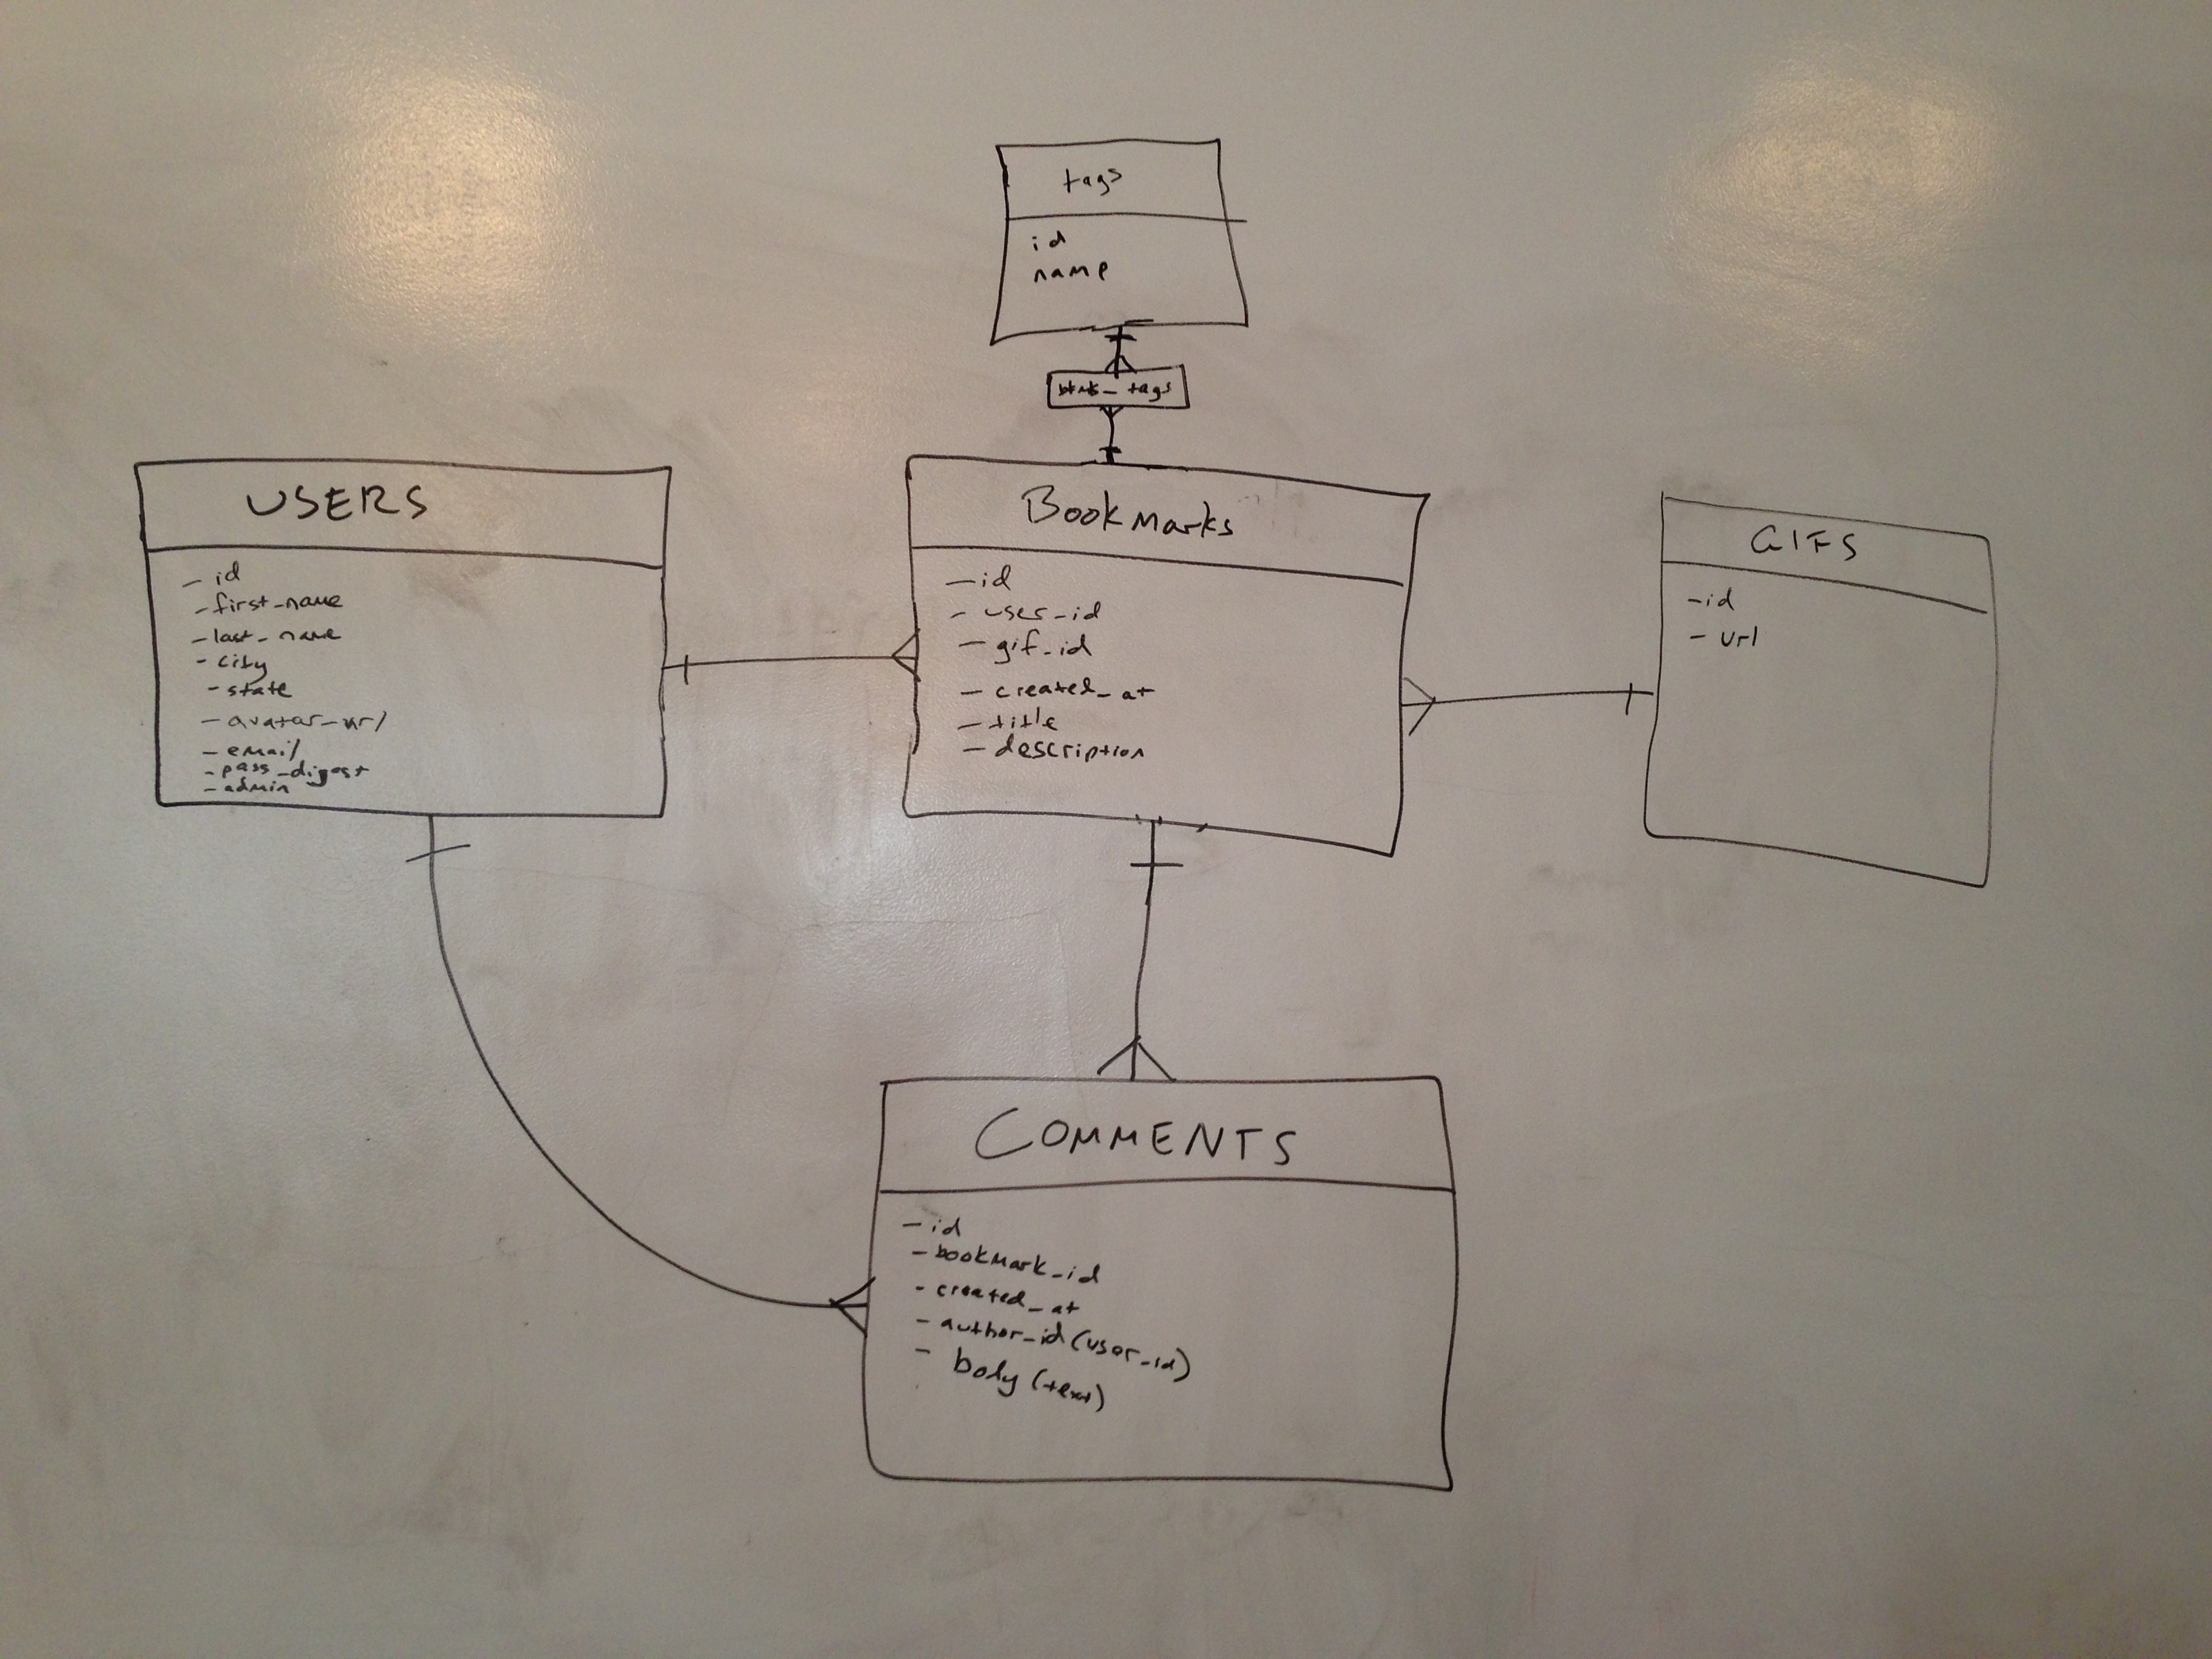 tags
id
name
bkmk_tags
USERS
- id
- first_name
- last_name
- city
- state
- avatar_url
- email
- pass_digest
- admin
Bookmarks
- id
- user_id
- gif_id
- created_at
- title
- description
GIFS
- id
- url
COMMENTS
- id
- bookmark_id
- created_at
- author_id (user_id)
- body (text)